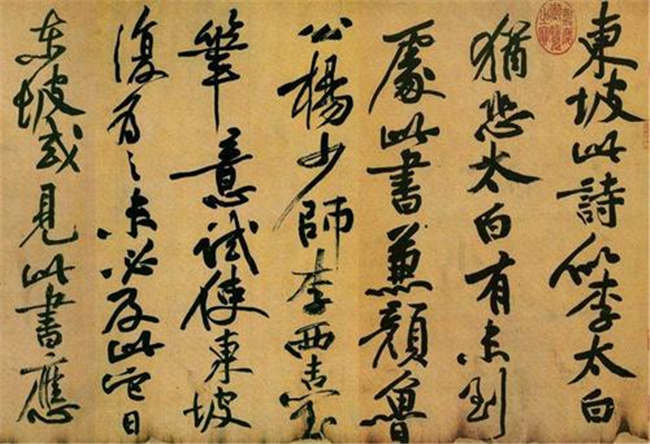 東坡此詩似李太白
猶恐太白有未到
處此書兼顔魯
公楊少師李西臺
筆意試使東坡
復為之未必及此它日
东坡或見此書應